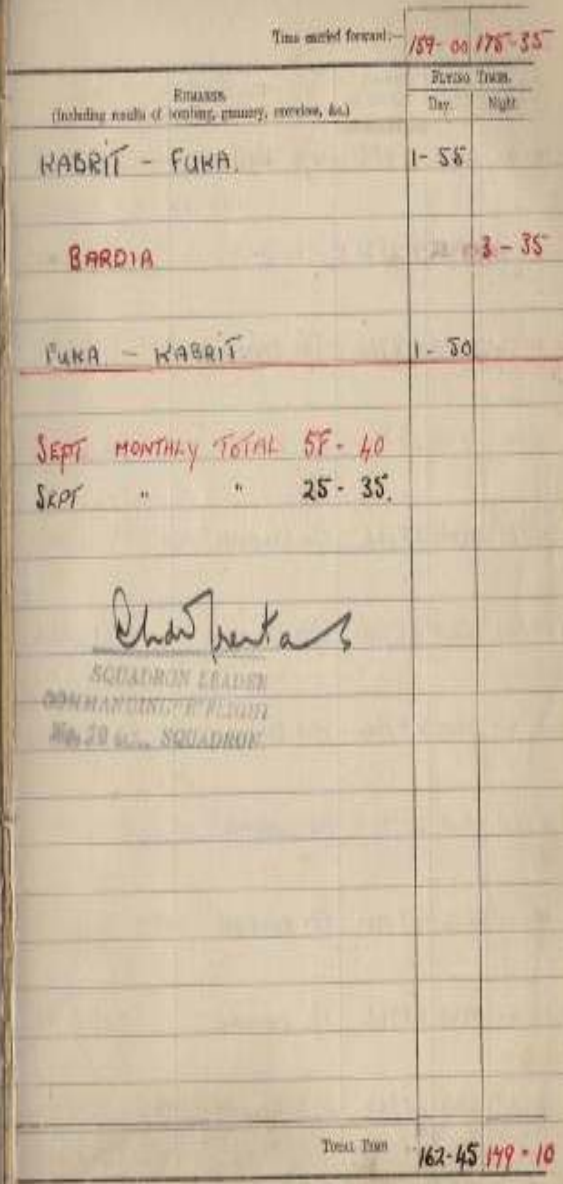 Time carried forward:— 159-00 175-35
FLYING TIMES.
REMARKS
(Including results of bombing, gunnery, exercises, &c.)
Day. Night.
KABRIT - FUKA. 1-55
BARDIA 3-35
FUKA - KABRIT 1-50
SEPT MONTHLY TOTAL 58-40
SEPT " " 25-35.
SQUADRON LEADER
COMMANDING FLIGHT
SQUADRON
TOTAL TIME 162-45 149-10